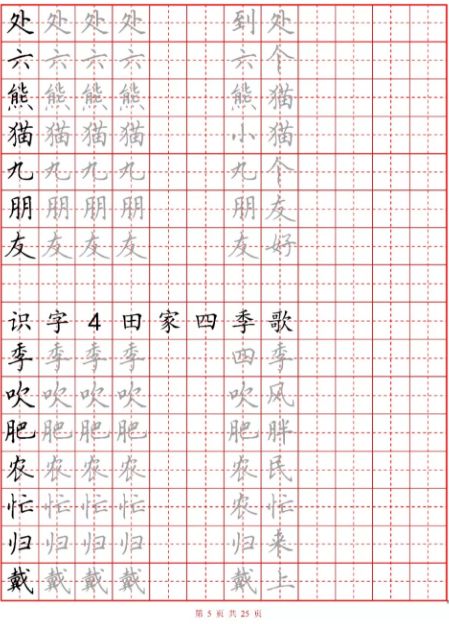 处处处处到处
六六六六六个
熊熊熊熊熊猫
猫猫猫猫小猫
九九九九九个
朋朋朋朋朋友
友友友友友好
识字4田家四季歌
季季季季四季
吹吹吹吹吹风
肥肥肥肥肥胖
农农农农农民
忙忙忙忙农忙
归归归归归来
戴戴戴戴戴上
第 5 页 共 25 页